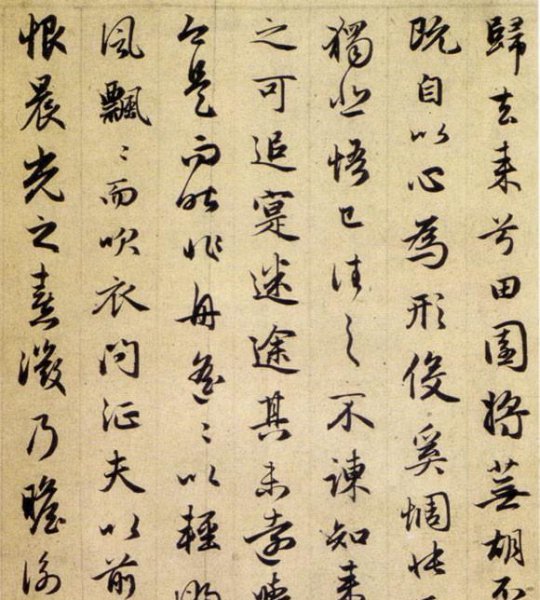 歸去来兮田園將蕪胡不
既自以心為形役奚惆悵
獨悲悟已往之不諫知来
之可追寔迷途其未遠
今是而昨非舟遥〻以輕
風飄〻而吹衣問征夫以前
恨晨光之熹微乃瞻衡